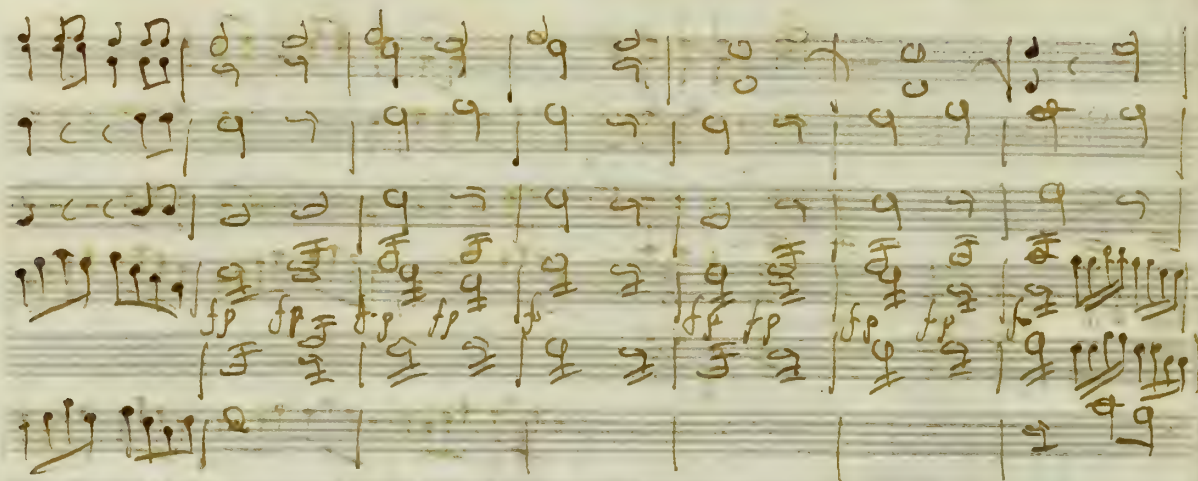 fp fp fp fp f fp fp fp fp f